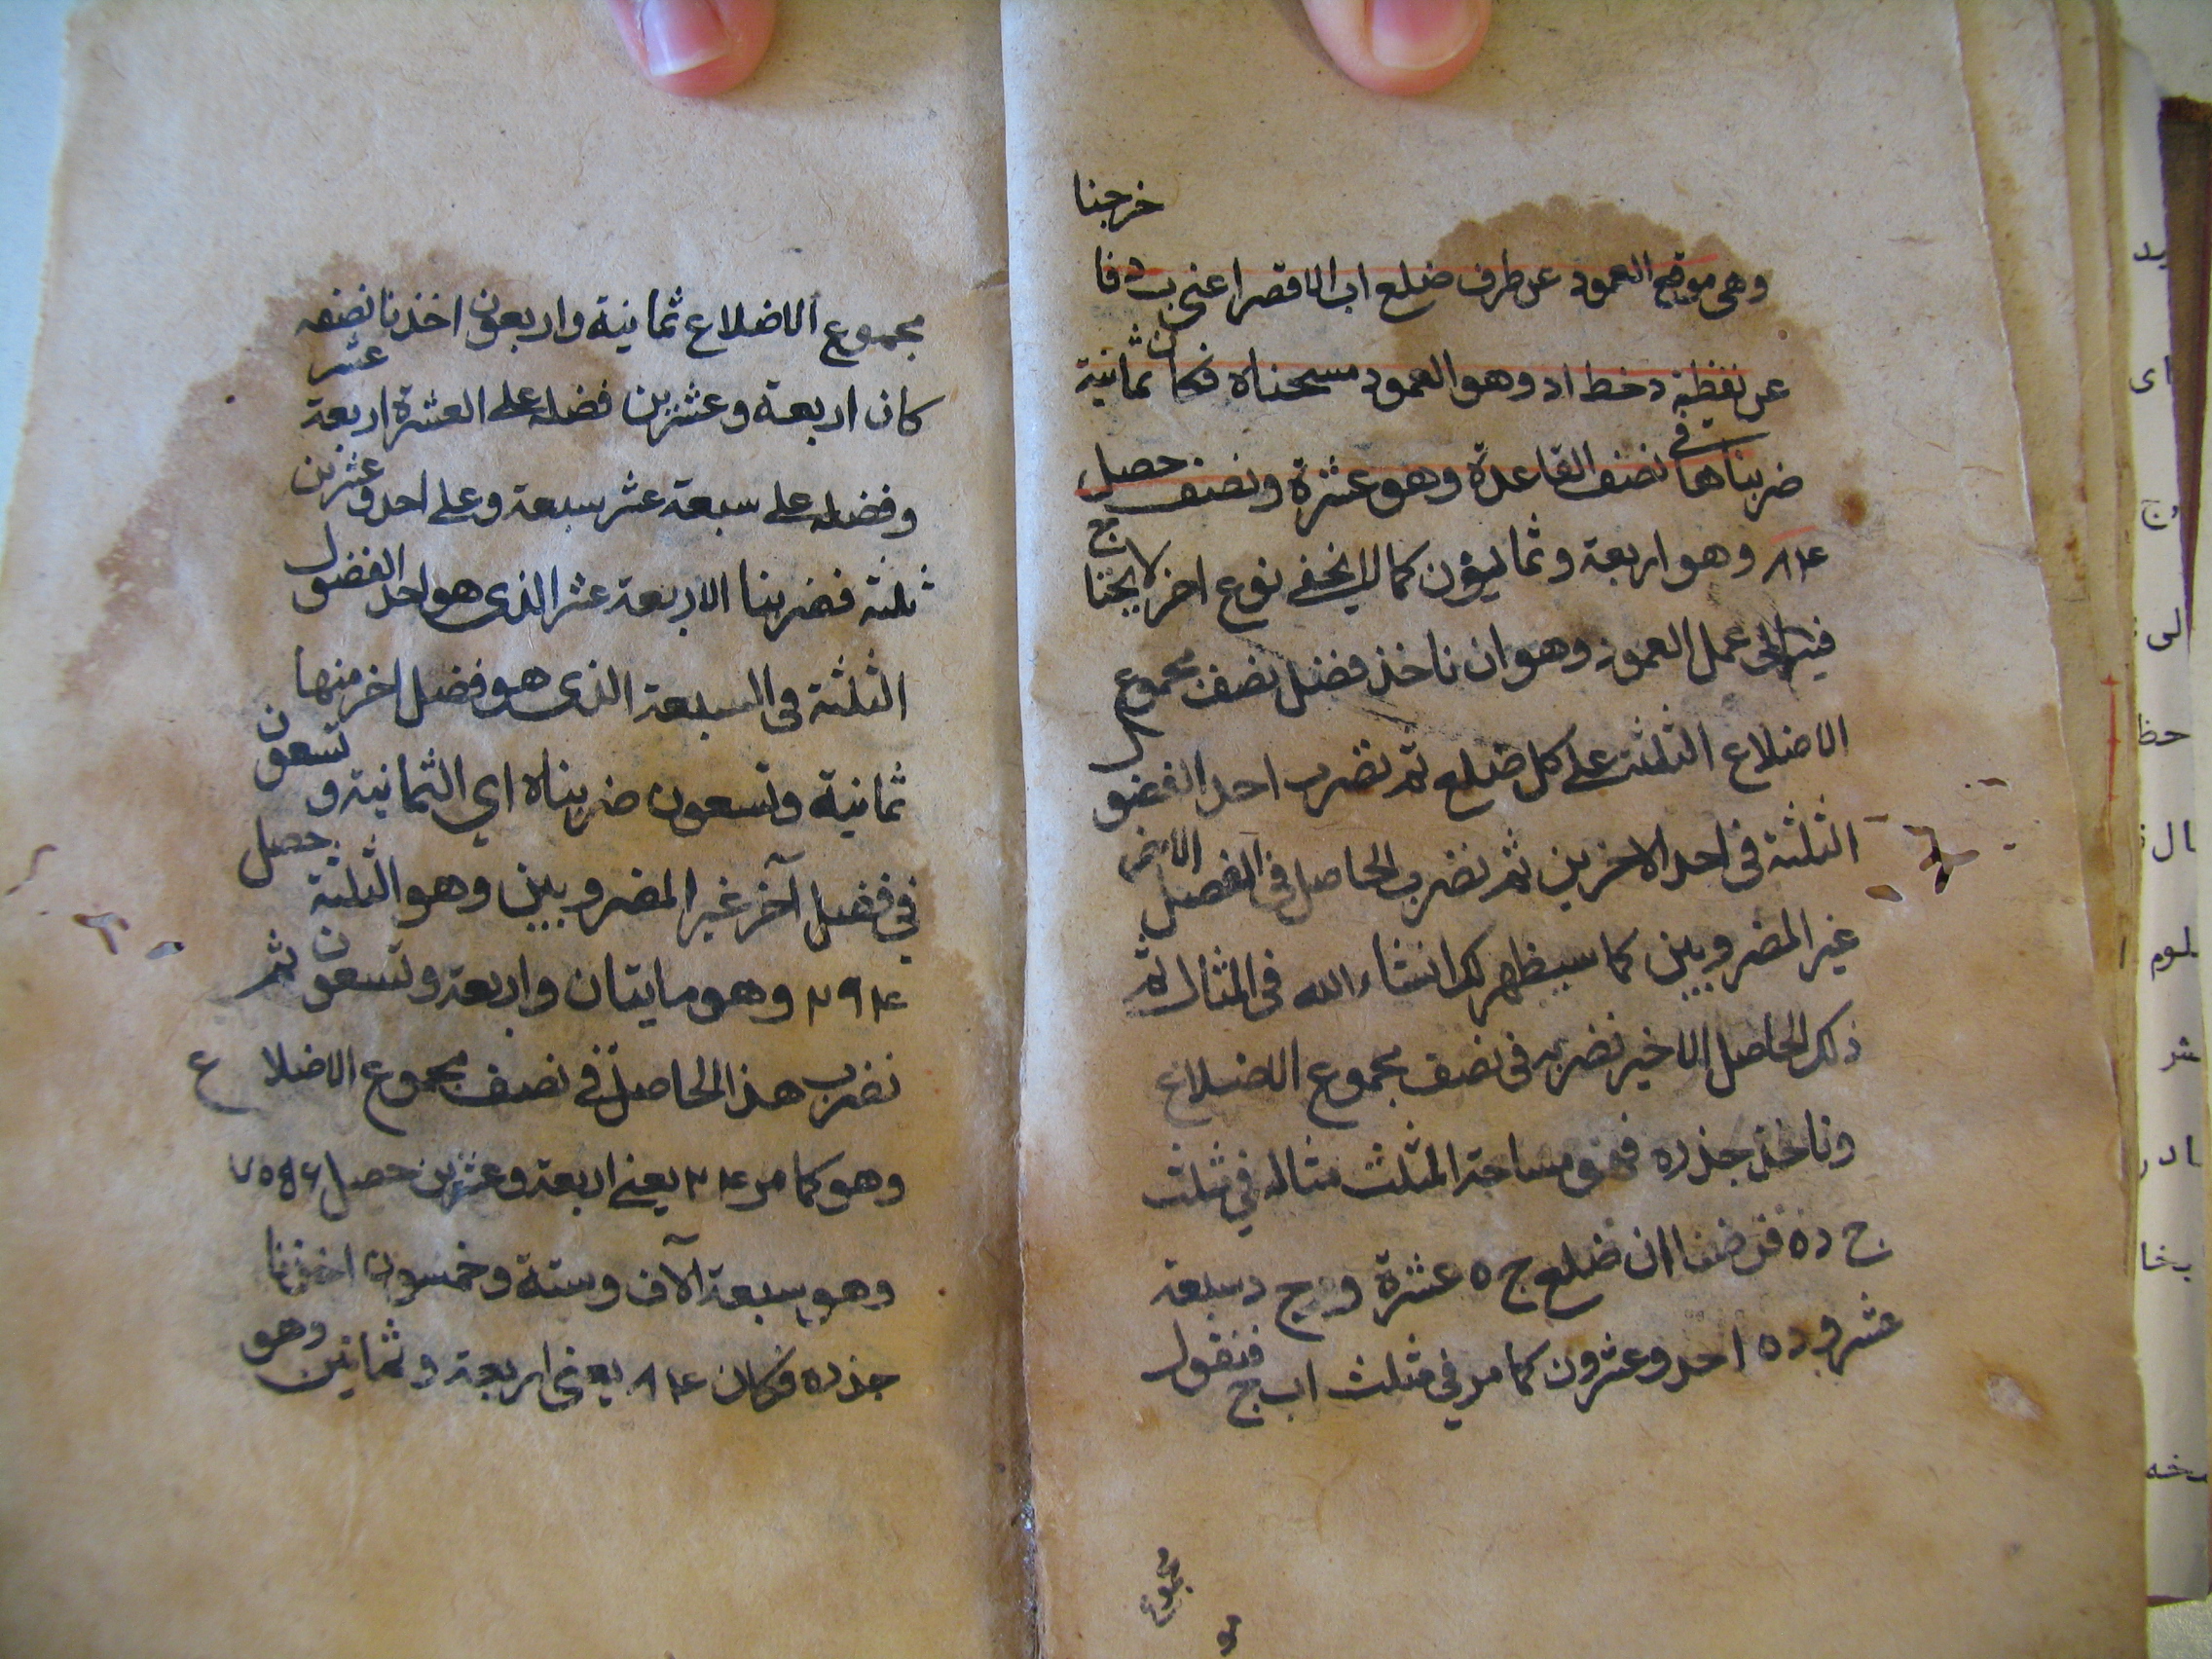 وهى موقع العمود عن طرف ضلع اب الاقصر اعنى ب د فا خرجنا
عن نقطة د خط اد وهو العمود مسحناه فكان ثمانية
ضربناها فى نصف القاعدة وهو عشرة ونصف حصل
٨٤ وهو اربعة وثمانون كما لا يخفى نوع اخر لا يحتاج
فيه الى عمل العمود وهو ان ناخذ فضل نصف مجموع
الاضلاع الثلثة على كل ضلع ثم نضرب احد الفضول
الثلثة فى احد الاخرين ثم نضرب الحاصل فى الفضل الاخر
غير المضروبين كما سيظهر لك انشاء الله فى المثال ثم
ذلك الحاصل الاخير نضربه فى نصف مجموع الاضلاع
وناخذ جذره فهو مساحة المثلث مثاله في مثلث
ج د ه فرضنا ان ضلع ج ه عشرة و ج د سبعة
عشر و د ه احد وعشرون كما مر في مثلث اب ج فنقول
مجموع
مجموع الاضلاع ثمانية واربعون اخذنا نصفه
كان اربعة وعشرين فضله على العشرة اربعة عشر
وفضله على سبعة عشر سبعة وعلى احد وعشرين
ثلثة فضربنا الاربعة عشر الذى هو احد الفضول
الثلثة فى السبعة الذى هو فضل اخر منها
ثمانية وتسعون ضربناه اي الثمانية وتسعون
في فضل آخر غير المضروبين وهو الثلثة حصل
٢٩٤ وهو مايتان واربعة وتسعون ثم
نضرب هذا الحاصل فى نصف مجموع الاضلاع
وهو كما مر ٢٤ يعنى اربعة وعشرين حصل ٧٠٥٦
وهو سبعة آلاف وستة وخمسون اخذنا
جذره فكان ٨٤ يعنى اربعة وثمانين وهو